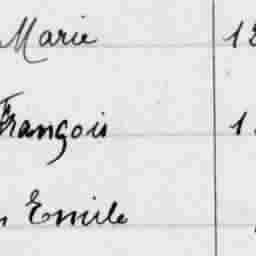 Marie 18
François 1
Emile